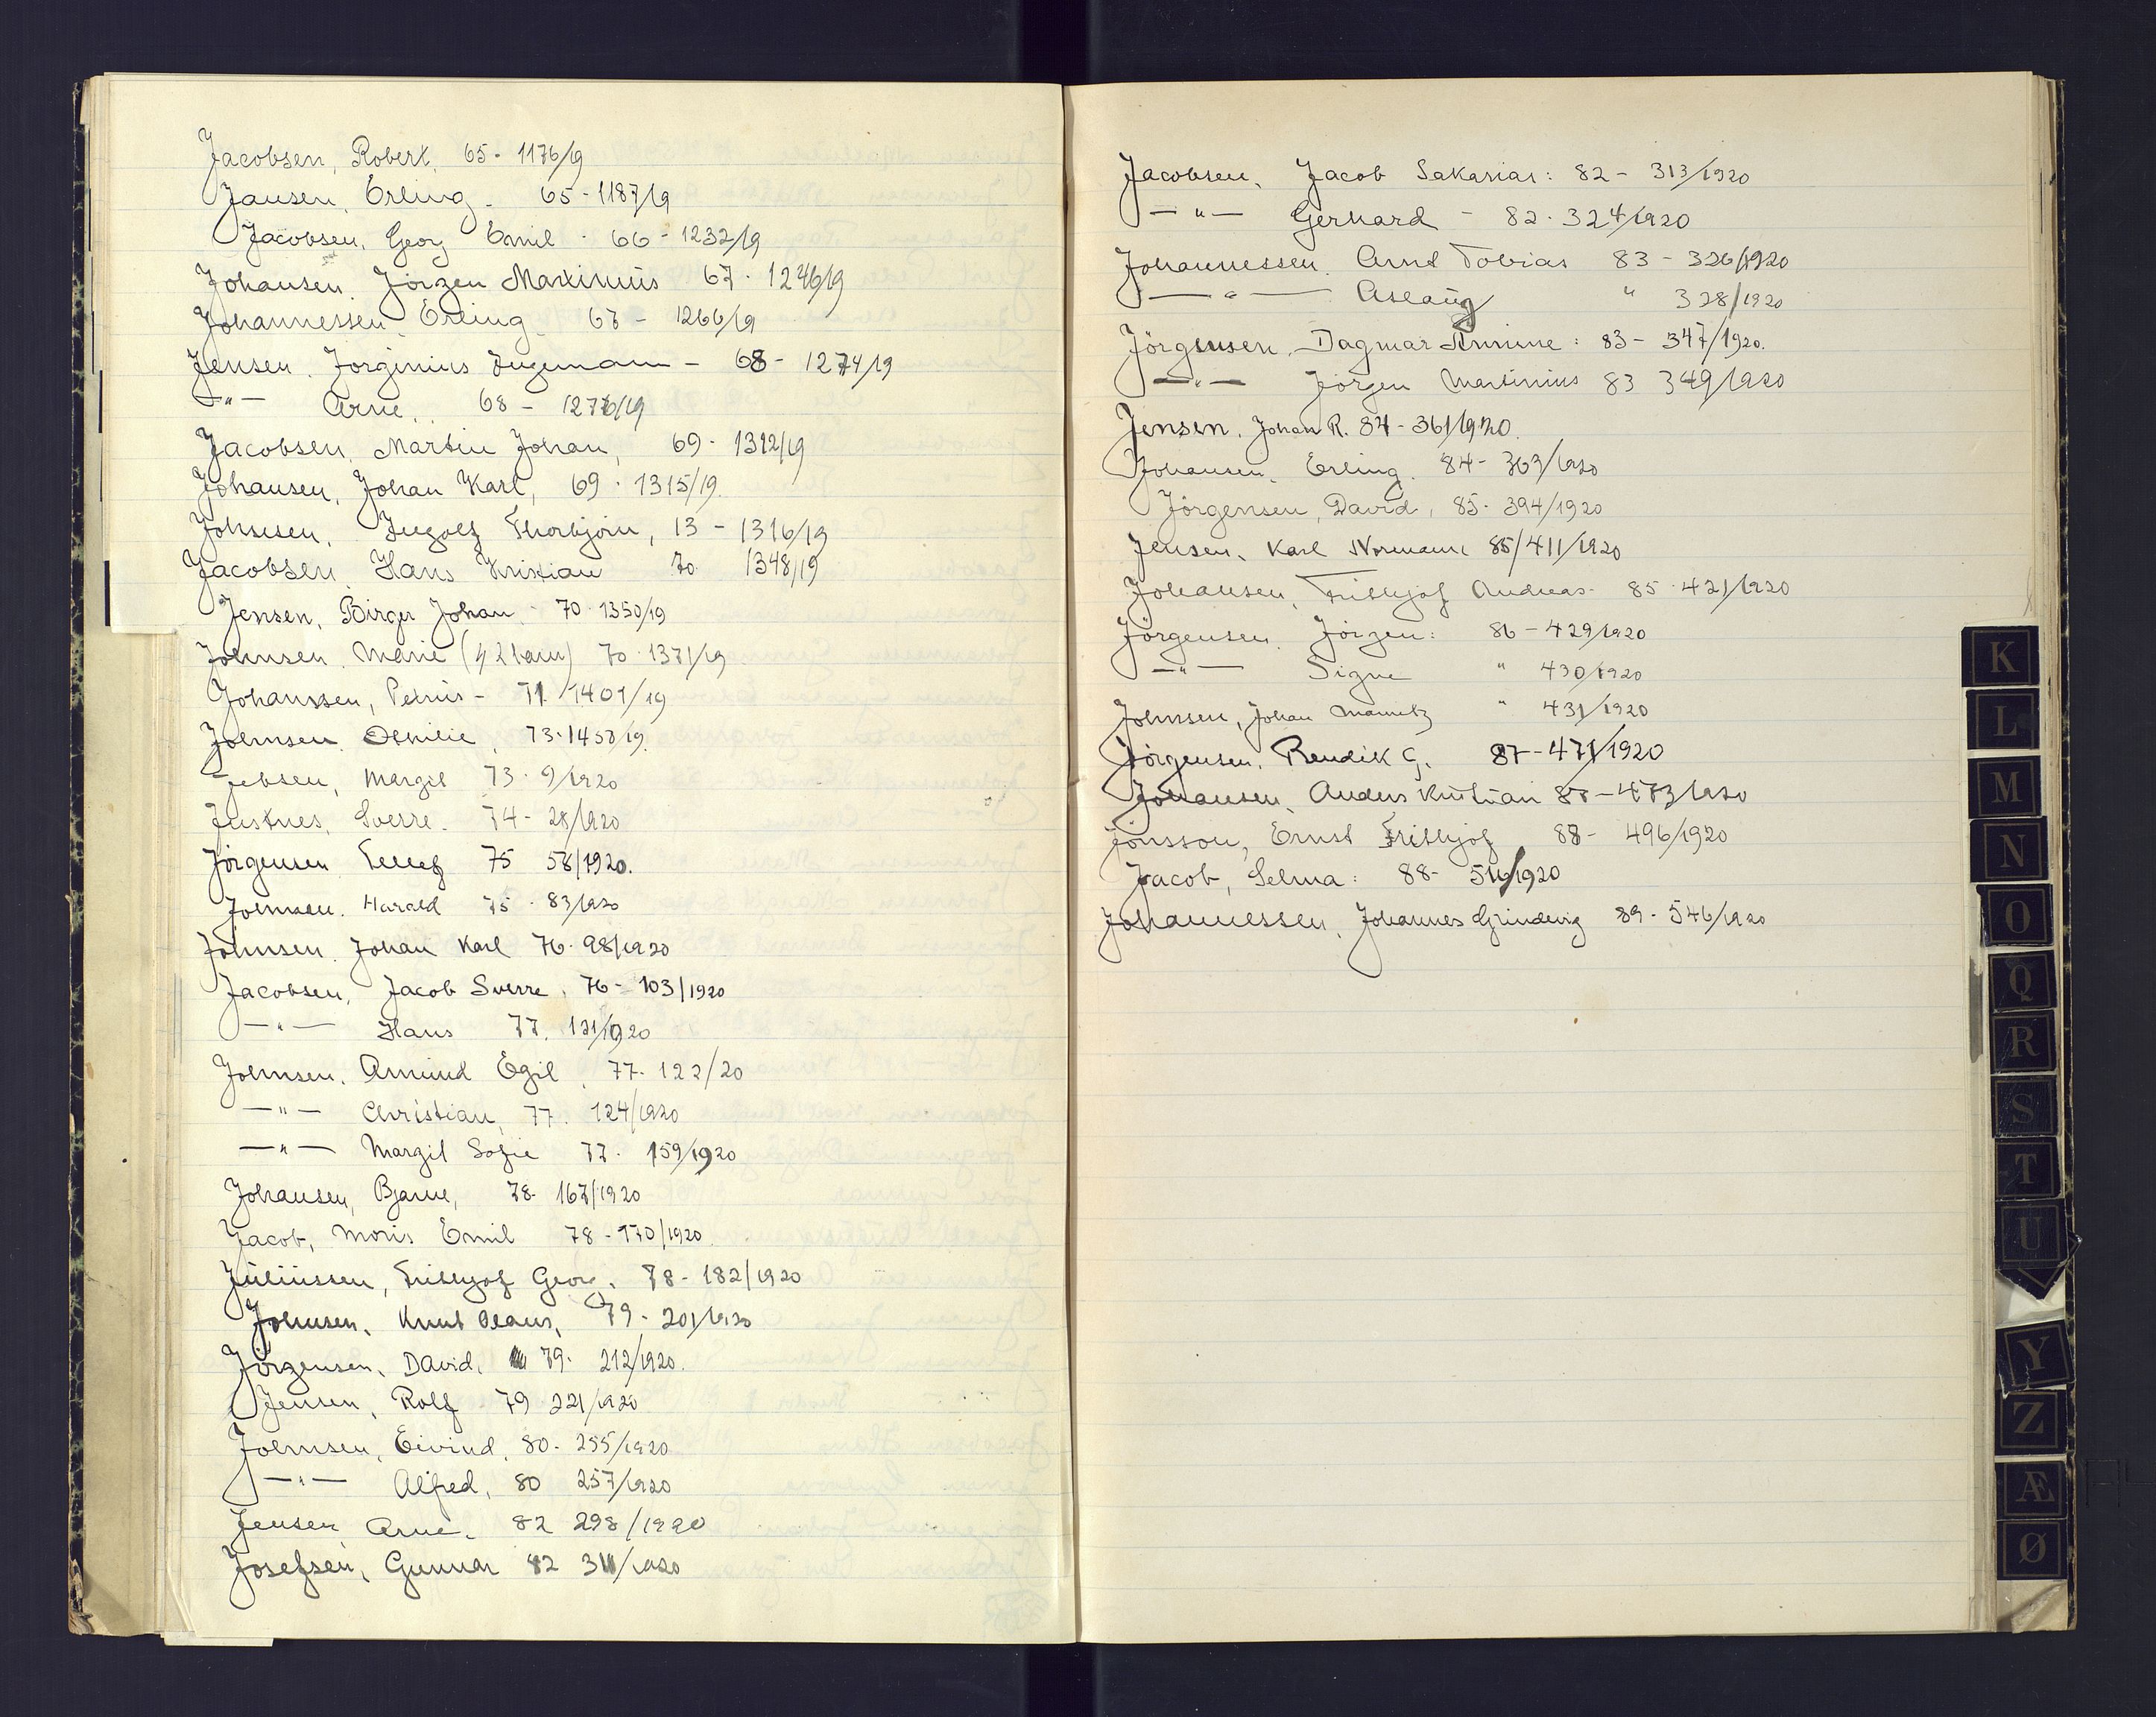 Jacobsen, Robert. 65 - 1176/19
Jansen, Erling - 65 - 1187/19
Jacobsen, Georg Emil - 66 - 1232/19
Johansen, Jörgen Maximus 67 - 1246/19
Johannessen, Erling 67 - 1266/19
Jensen, Jorginius - 68 - 1274/19
—"— Arne, 68 - 1276/19
Jacobsen, Martin Johan, 69 - 1312/19
Johansen, Johan Karl, 69 - 1315/19
Johnsen, Ingolf Thorbjörn, 13 - 1316/19
Jacobsen, Hans Kristian 70 1348/19
Jensen, Birger Johan - 70 - 1350/19
Johnsen, Marie 70 - 1371/19
Johanssen, Petrus - 71. 1401/19
Johnsen, Othilie, 73 - 1458/19.
Jebsen, Margit 73 - 9/1920
Justnes, Sverre - 74 - 28/1920
Jörgensen, Tellef 75 58/1920.
Johnsen, Harald 75 - 83/1920
Johnsen, Johan Karl 76 - 98/1920
Jacobsen, Jacob Sverre, 76 - 103/1920
—"— Hans 77. 121/1920
Johnsen, Amund Egil, 77 - 122/20
—"— Christian, 77. 124/1920
—"— Margit Sofie 77 - 159/1920
Johansen, Bjarne, 78 - 167/1920
Jacob, Moris Emil 78 - 170/1920
Juliussen, Frithjof Georg, 78 - 182/1920
Johnsen, Knut Olaus, 79 - 201/1920
Jörgensen, David, 79 - 212/1920.
Jensen, Rolf 79 221/1920
Johnsen, Eivind, 80 - 255/1920
—"— Alfred, 80 257/1920
Jensen Arne, 82 298/1920
Josefsen, Gunnar 82 311/1920
Jacobsen, Jacob Sakarias: 82 - 313/1920
—"— Gerhard - 82 - 324/1920
Johannessen, Arnt Tobias 83 - 326/1920
—"— Aslaug " 328/1920
Jörgensen, Dagmar Annine: 83 - 347/1920.
—"— Jörgen Martinius 83 349/1920
Jensen, Johan R. 84 - 361/1920.
Johansen, Erling. 84 - 363/1920
Jörgensen, David, 85 - 394/1920
Jensen, Karl Normann 85/411/1920
Johansen, Frithjof Andreas - 85 - 421/1920
Jörgensen, Jörgen: 86 - 429/1920
—"— Signe " 430/1920
Johnsen, Johan " 431/1920
Jörgensen, Bendik G. 87 - 471/1920
Johansen, Anders Kristian 87 - 473/1920
Jonsson, Ernst Frithjof 88 - 496/1920
Jacob, Selma: 88 - 1920
Johannessen, Johannes 89 - 546/1920
K
L
M
N
O
Q
R
S
T
U
Y
Z
Æ
Ø